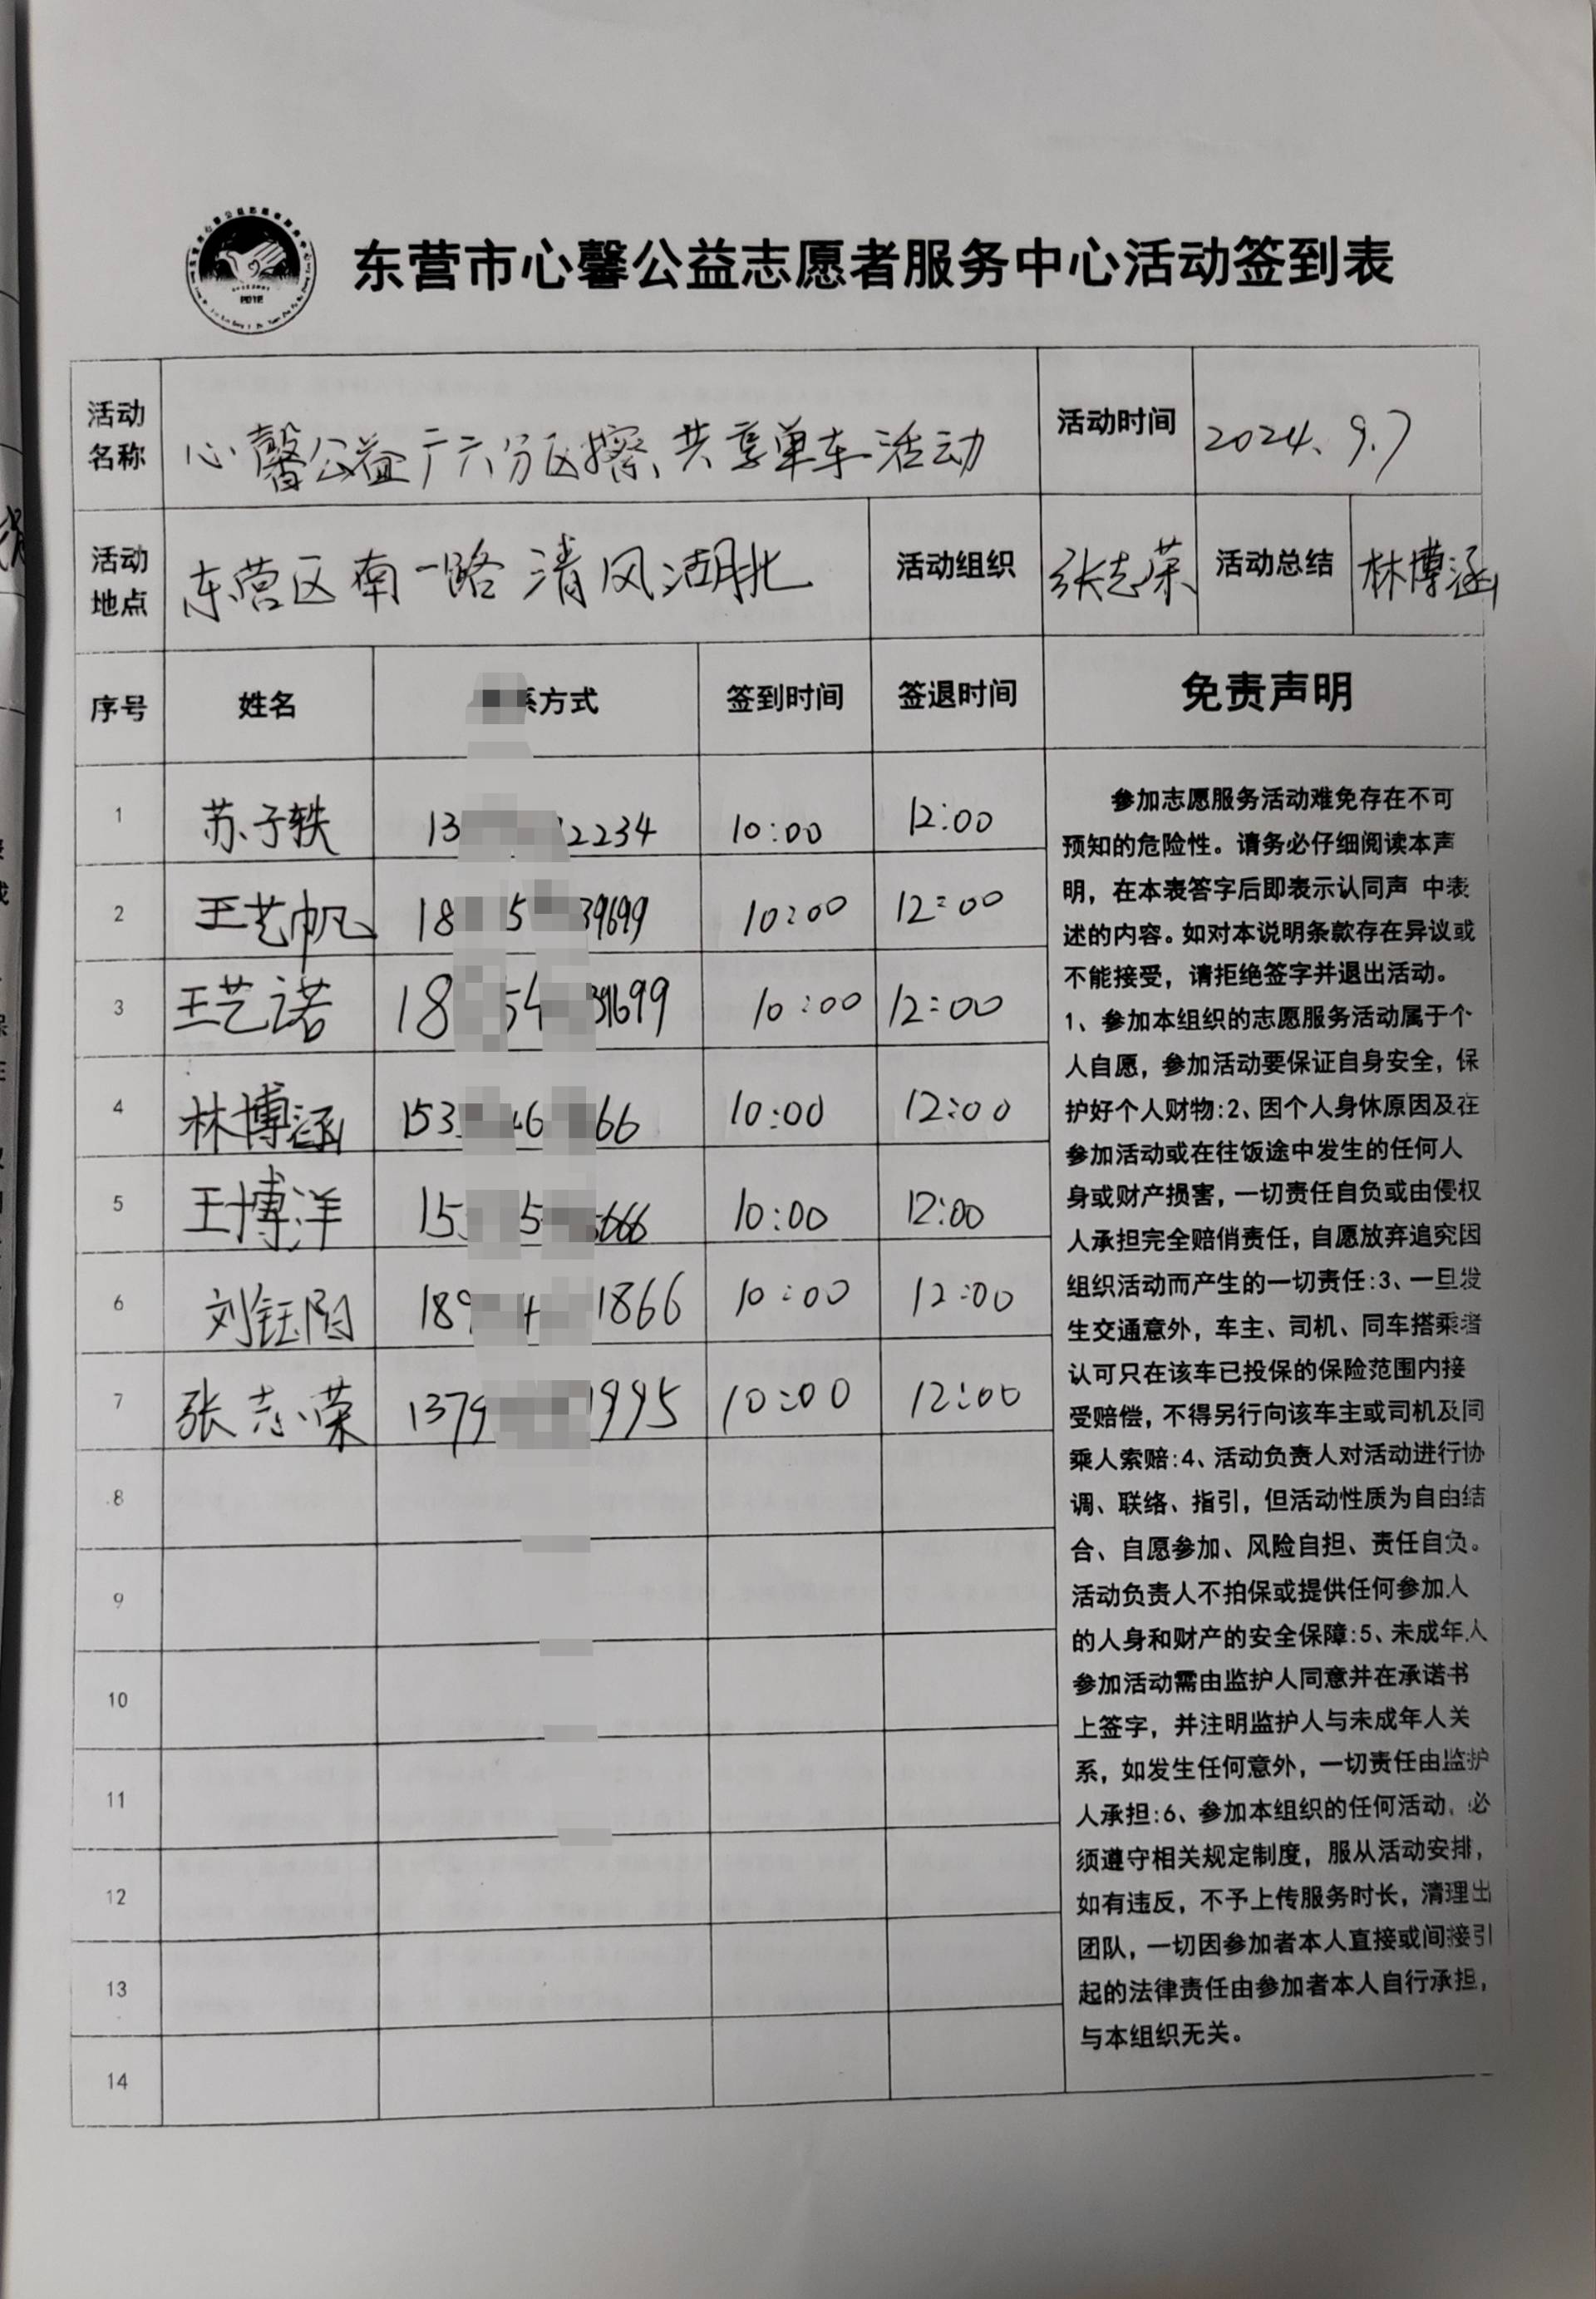 东营市心馨公益志愿者服务中心活动签到表
活动名称 心馨公益广六分区擦共享单车活动 活动时间 2024.9.7
活动地点 东营区南一路清风湖北 活动组织 张志荣 活动总结 林博涵
序号 姓名 系方式 签到时间 签退时间 免责声明
1 苏子轶 13 2234 10:00 12:00
2 王艺帆 18 5 39699 10:00 12:00
3 王艺诺 18 54 39699 10:00 12:00
4 林博涵 153 46 66 10:00 12:00
5 王博洋 15 5 5666 10:00 12:00
6 刘钰 189 4 1866 10:00 12:00
7 张志荣 1379 1995 10:00 12:00
8
9
10
11
12
13
14
参加志愿服务活动难免存在不可
预知的危险性。请务必仔细阅读本声
明，在本表答字后即表示认同声 中表
述的内容。如对本说明条款存在异议或
不能接受，请拒绝签字并退出活动。
1、参加本组织的志愿服务活动属于个
人自愿，参加活动要保证自身安全，保
护好个人财物:2、因个人身休原因及在
参加活动或在往饭途中发生的任何人
身或财产损害，一切责任自负或由侵权
人承担完全赔俏责任，自愿放弃追究因
组织活动而产生的一切责任:3、一旦发
生交通意外，车主、司机、同车搭乘者
认可只在该车已投保的保险范围内接
受赔偿，不得另行向该车主或司机及同
乘人索赔:4、活动负责人对活动进行协
调、联络、指引，但活动性质为自由结
合、自愿参加、风险自担、责任自负。
活动负责人不拍保或提供任何参加人
的人身和财产的安全保障:5、未成年人
参加活动需由监护人同意并在承诺书
上签字，并注明监护人与未成年人关
系，如发生任何意外，一切责任由监护
人承担:6、参加本组织的任何活动、必
须遵守相关规定制度，服从活动安排，
如有违反，不予上传服务时长，清理出
团队，一切因参加者本人直接或间接引
起的法律责任由参加者本人自行承担，
与本组织无关。